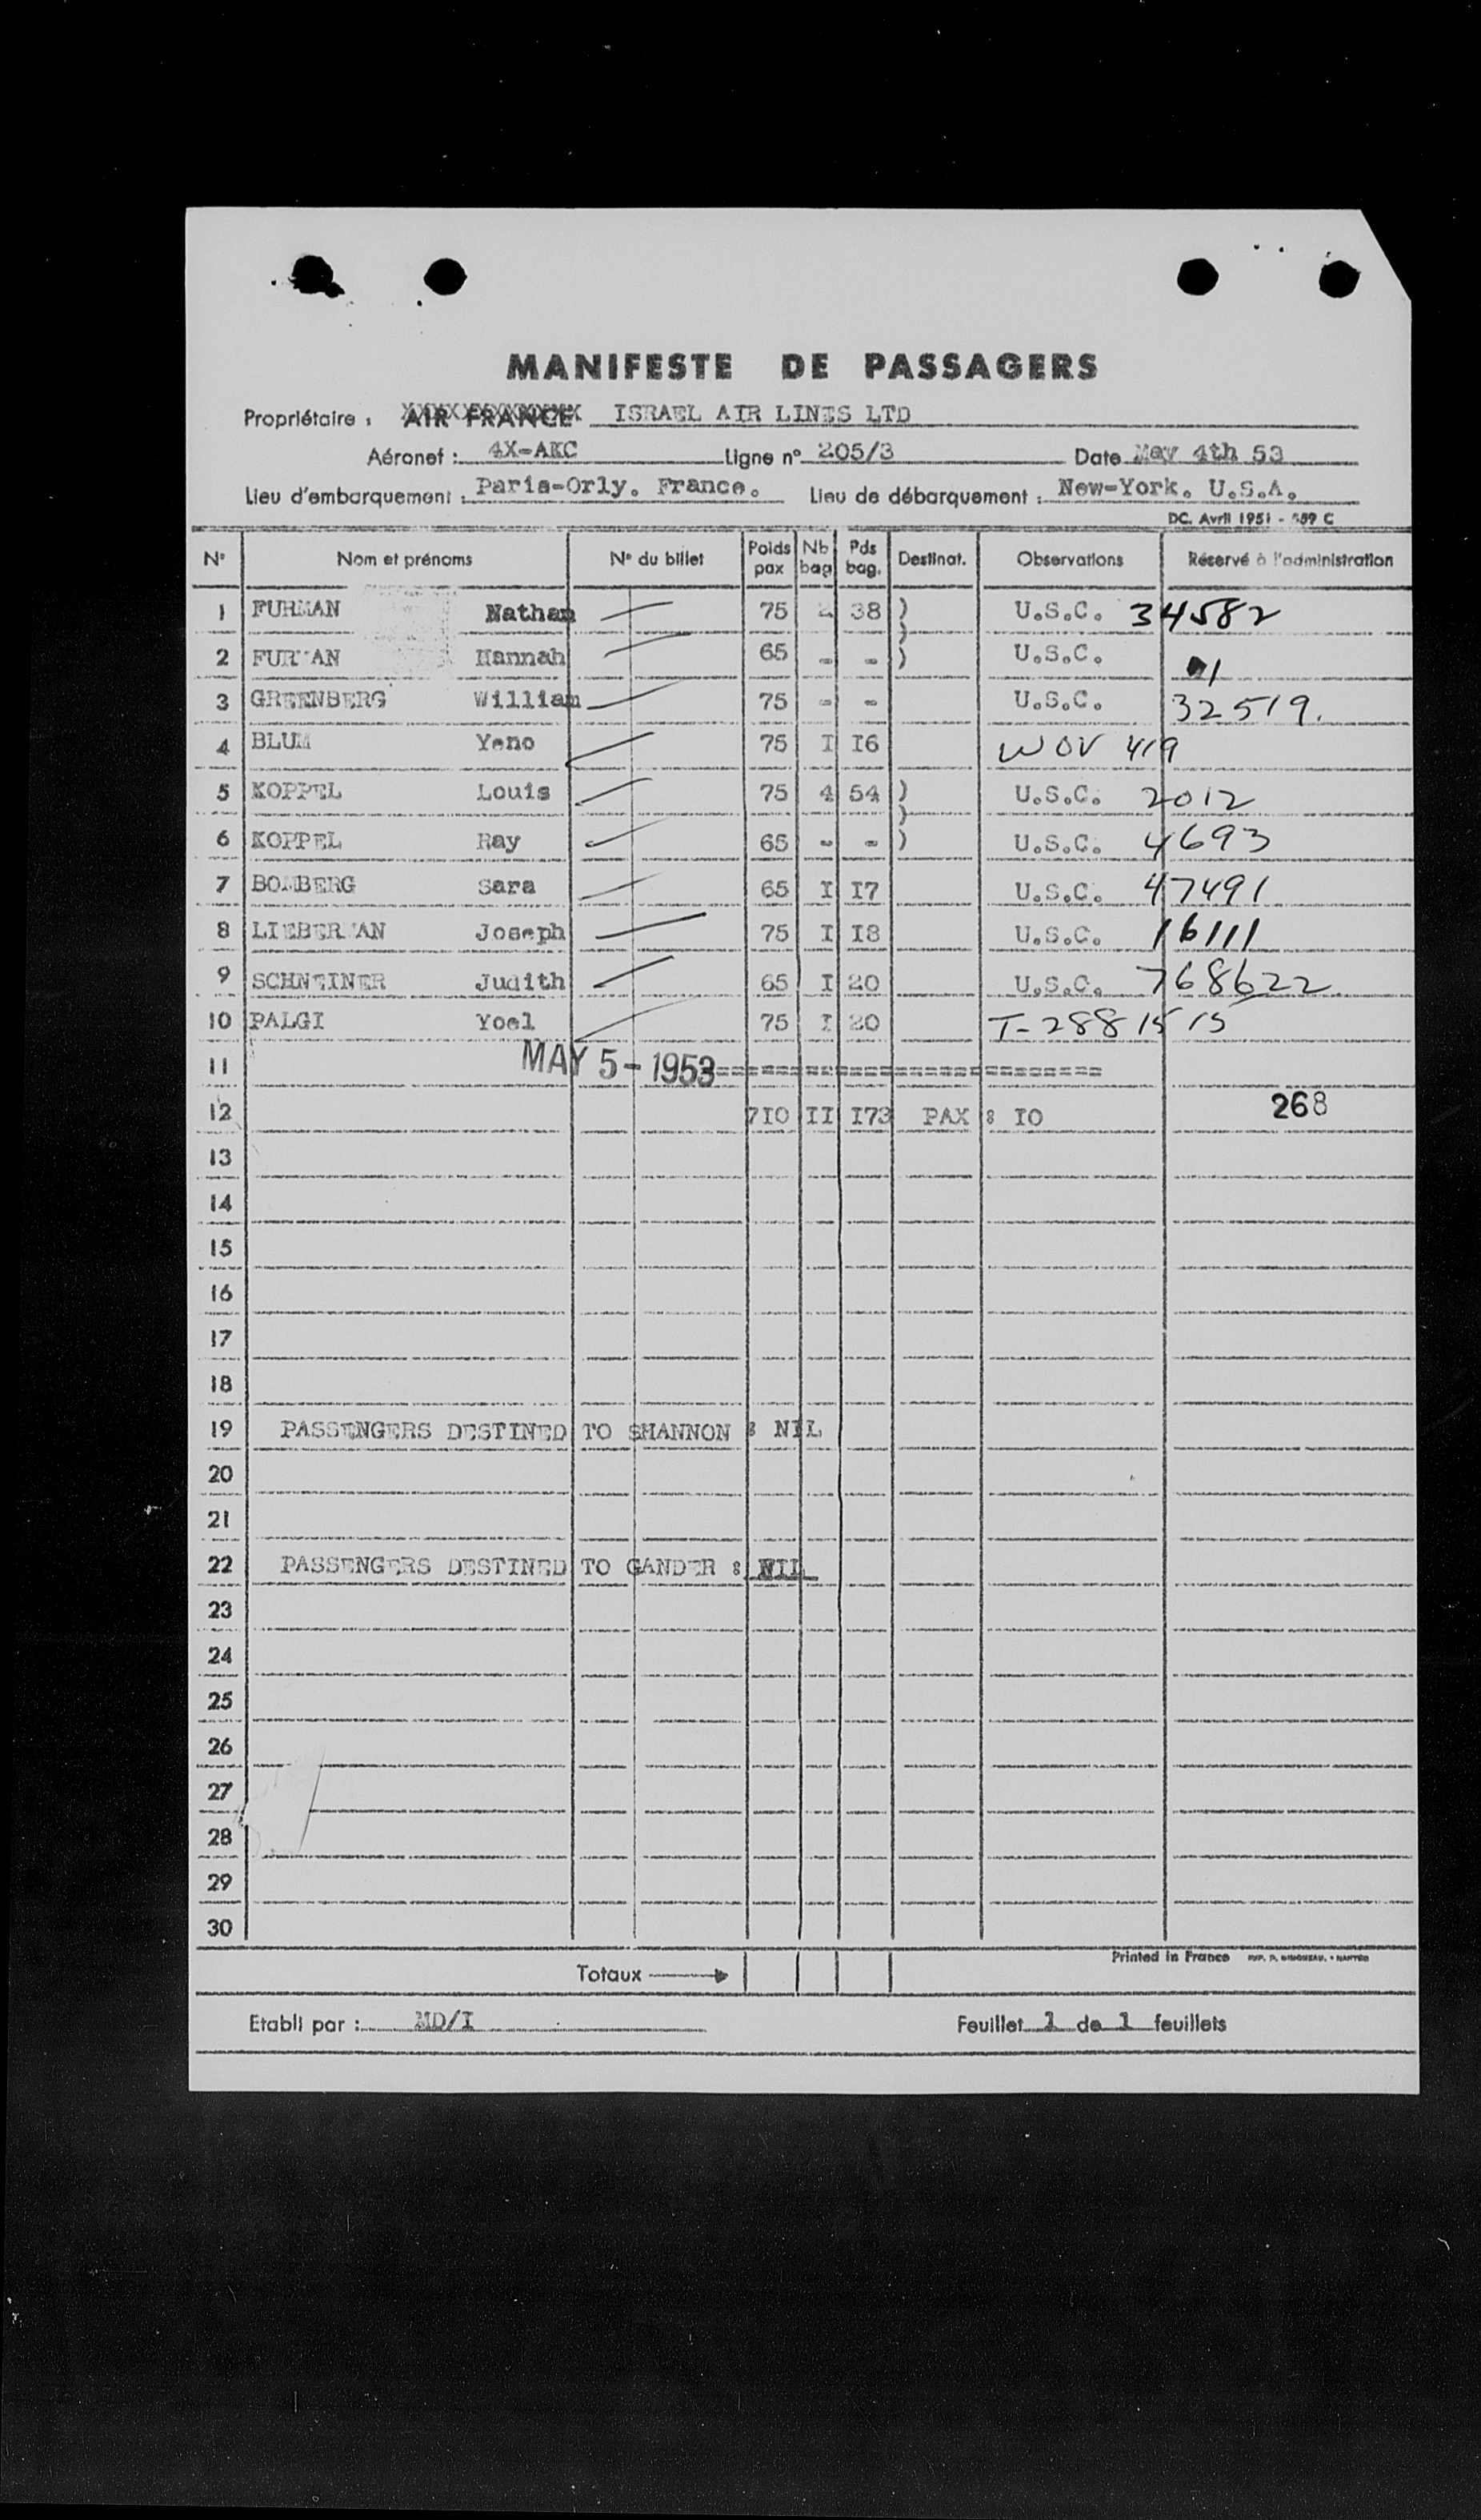 MANIFESTE DE PASSAGERS
Propriétaire : AIR FRANCE ISRAEL AIR LINES LTD
Aéronef : 4X-AKC Ligne n° 205/3 Date May 4th 53
Lieu d'embarquement : Paris-Orly. France. Lieu de débarquement : New-York. U.S.A.
DC. Avril 1951 -
N° Nom et prénoms N° du billet Poids pax Nb bag Pds bag. Destinat. Observations Réservé à l'administration
1 FURMAN Nathan 75 2 38 ) U.S.C. 34582
2 FURMAN Hannah 65 - - ) U.S.C. 1
3 GREENBERG William 75 - - U.S.C. 32519.
4 BLUM Yeno 75 I I6 WOV 419
5 KOPPEL Louis 75 4 54 ) U.S.C. 2012
6 KOPPEL Ray 65 - - ) U.S.C. 4693
7 BOMBERG Sara 65 I I7 U.S.C. 47491
8 LIEBERMAN Joseph 75 I I8 U.S.C. 16111
9 SCHNEINER Judith 65 I 20 U.S.C. 768622
10 PALGI Yoel 75 I 20 T-2881515
11 MAY 5-1953 ==========================
12 7I0 II I73 PAX : I0 268
13
14
15
16
17
18
19 PASSENGERS DESTINED TO SHANNON : NIL
20
21
22 PASSENGERS DESTINED TO GANDER : NIL
23
24
25
26
27
28
29
30
Printed in France
Totaux
Etabli par : MD/I Feuillet 1 de 1 feuillets